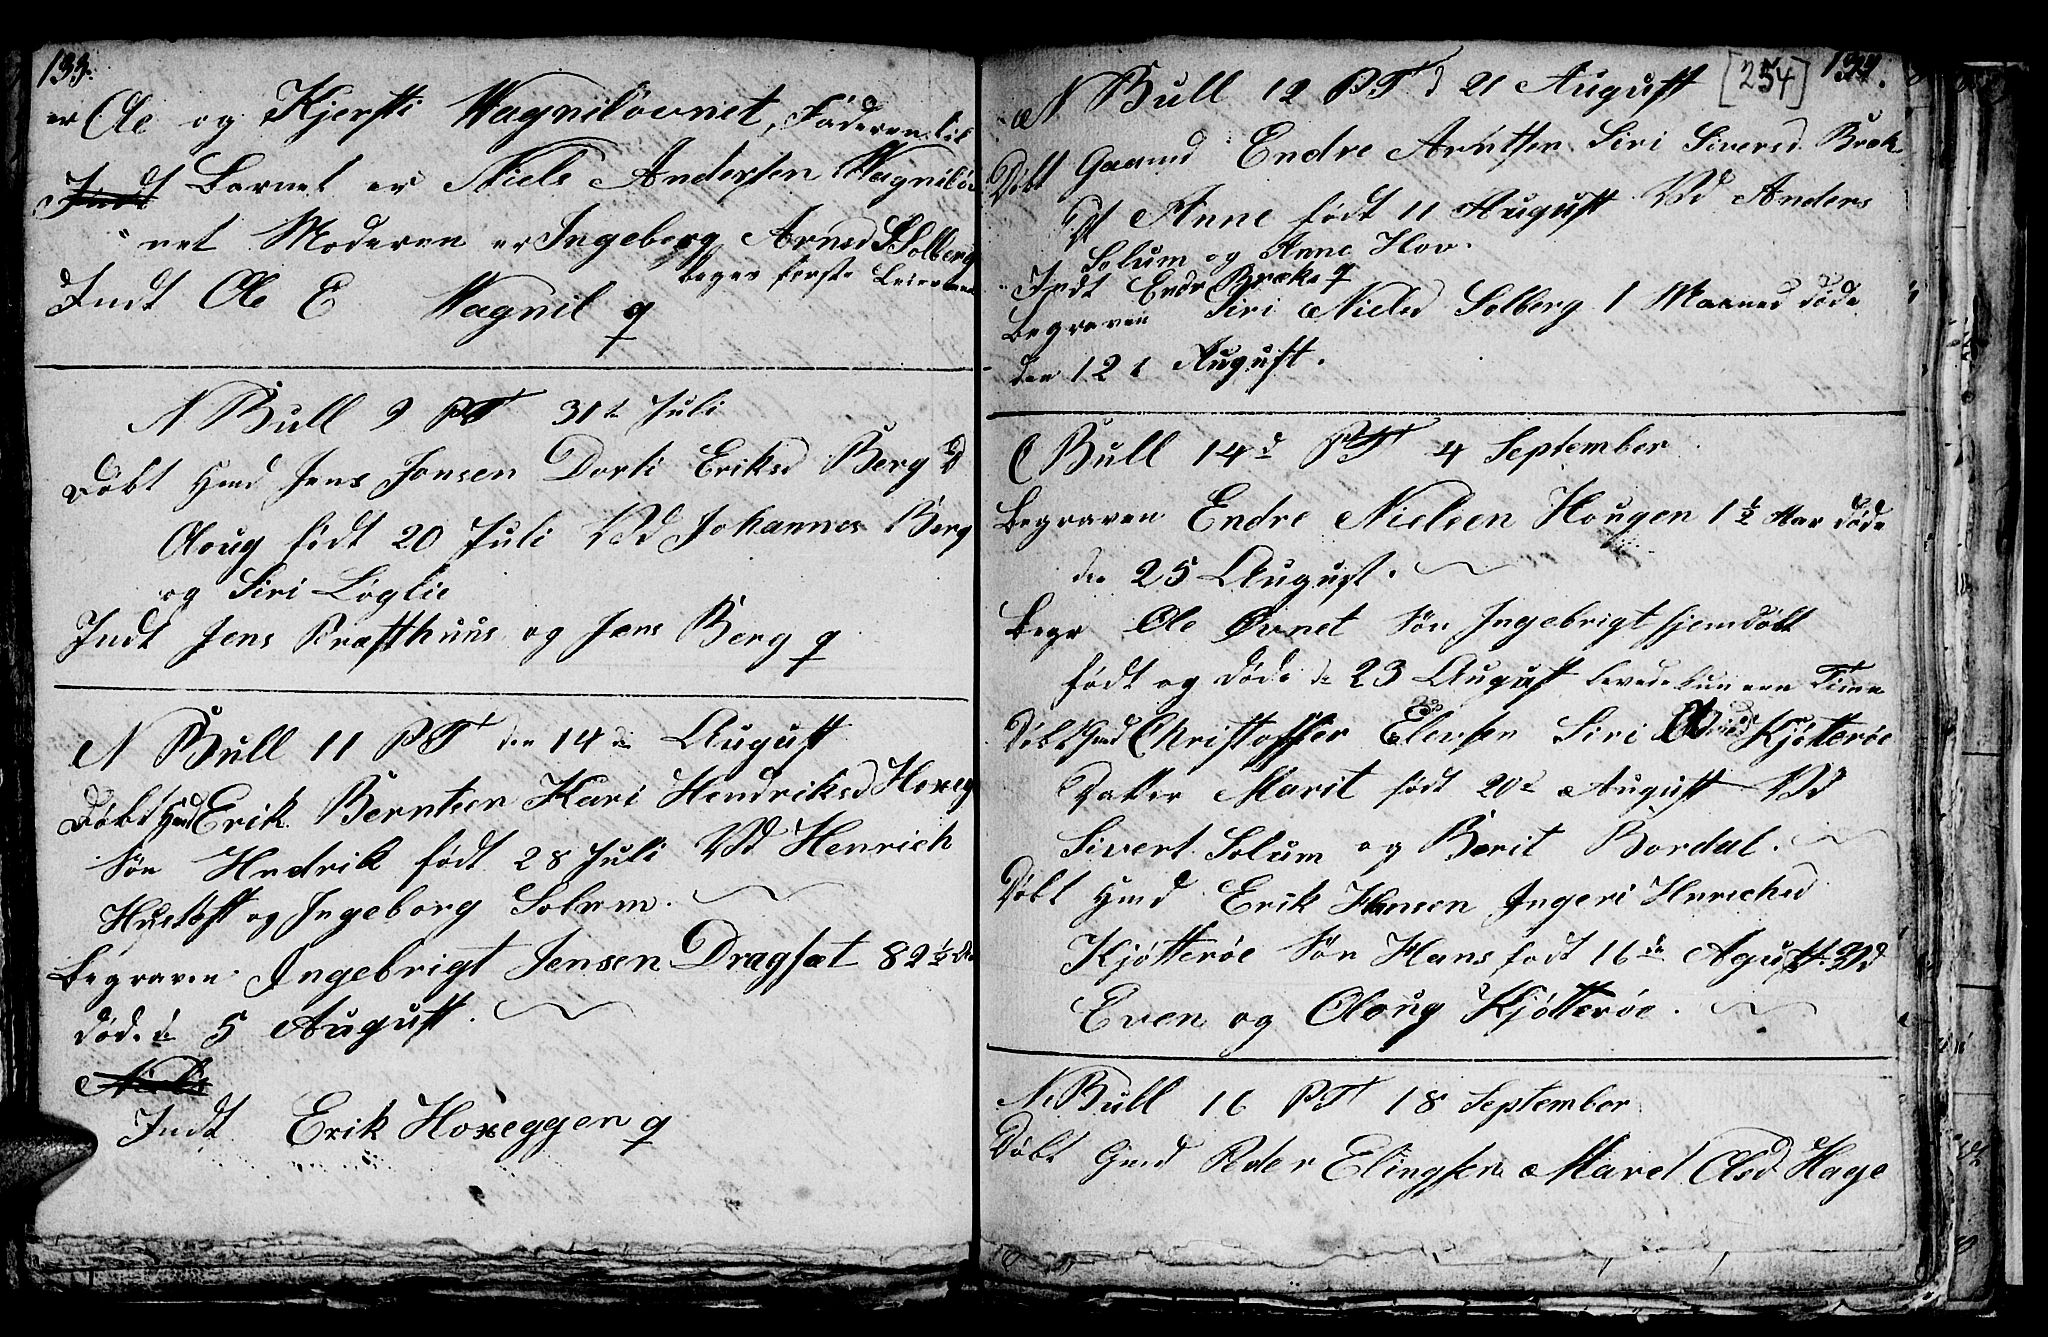 133.
er Ole og Kjersti Wagnilövnet, Föderen til
Indt Barnet er Niels Andersen Wagnilöv
net Moderen er Ingeberg Arnsd Solberg
beges første Leiermaal
Indt Ole E Wagnil q
N Bull 9 PT 31te Juli
Døbt Hmd Jens Jonsen Dorti Eriksd Berg D
Oloug født 20 Juli Vd Johannes Berg
og Siri Løglie
Indt Jens Præsthuus og Jens Berg q
N Bull 11 PT den 14de August
Døbt Hmd Erik Berntsen Kari Hendriksd Hoxeg
Sön Hndrik født 28 Juli Vd Henrich
Hustoft og Ingeborg Solem.
Begraven Ingebrigt Jensen Dragset 82 1/2
døde d 5 August.
Niels
Indt Erik Hoxeggen q
[254] 134.
N Bull 12 PT d 21 August
Døbt Gaamd Endre Arntsen Siri Siversd Bræk
Dt Anne født 11 August Vd Anders
Solum og Anne Hov.
Indt Endr Bræke q
Begraven Siri Nielsd Solberg 1 Maaned døde
den 12 August.
C Bull 14d PT 4 September
Begraven Endre Nielsen Hougen 1 1/2 Aar døde
den 25 August.
Begr Ole Øvnet Sön Ingebrigt hjemdøbt
født og døde de 23 August levede kun een Time
Døbt Hmd Christoffer Elensen Siri Kjøtterøe
Datter Marit født 20de August Vd
Sivert Solum og Berit Bordal.
Døbt Hmd Erik Hansen Ingeri Hnrichsd
Kjøtterøe Sön Hans født 16de Agust Vd
Even og Oloug Kjøtterøe.
N Bull 16 PT 18 September
Døbt Gmd Peder Elingsen Maret Olsd Hage